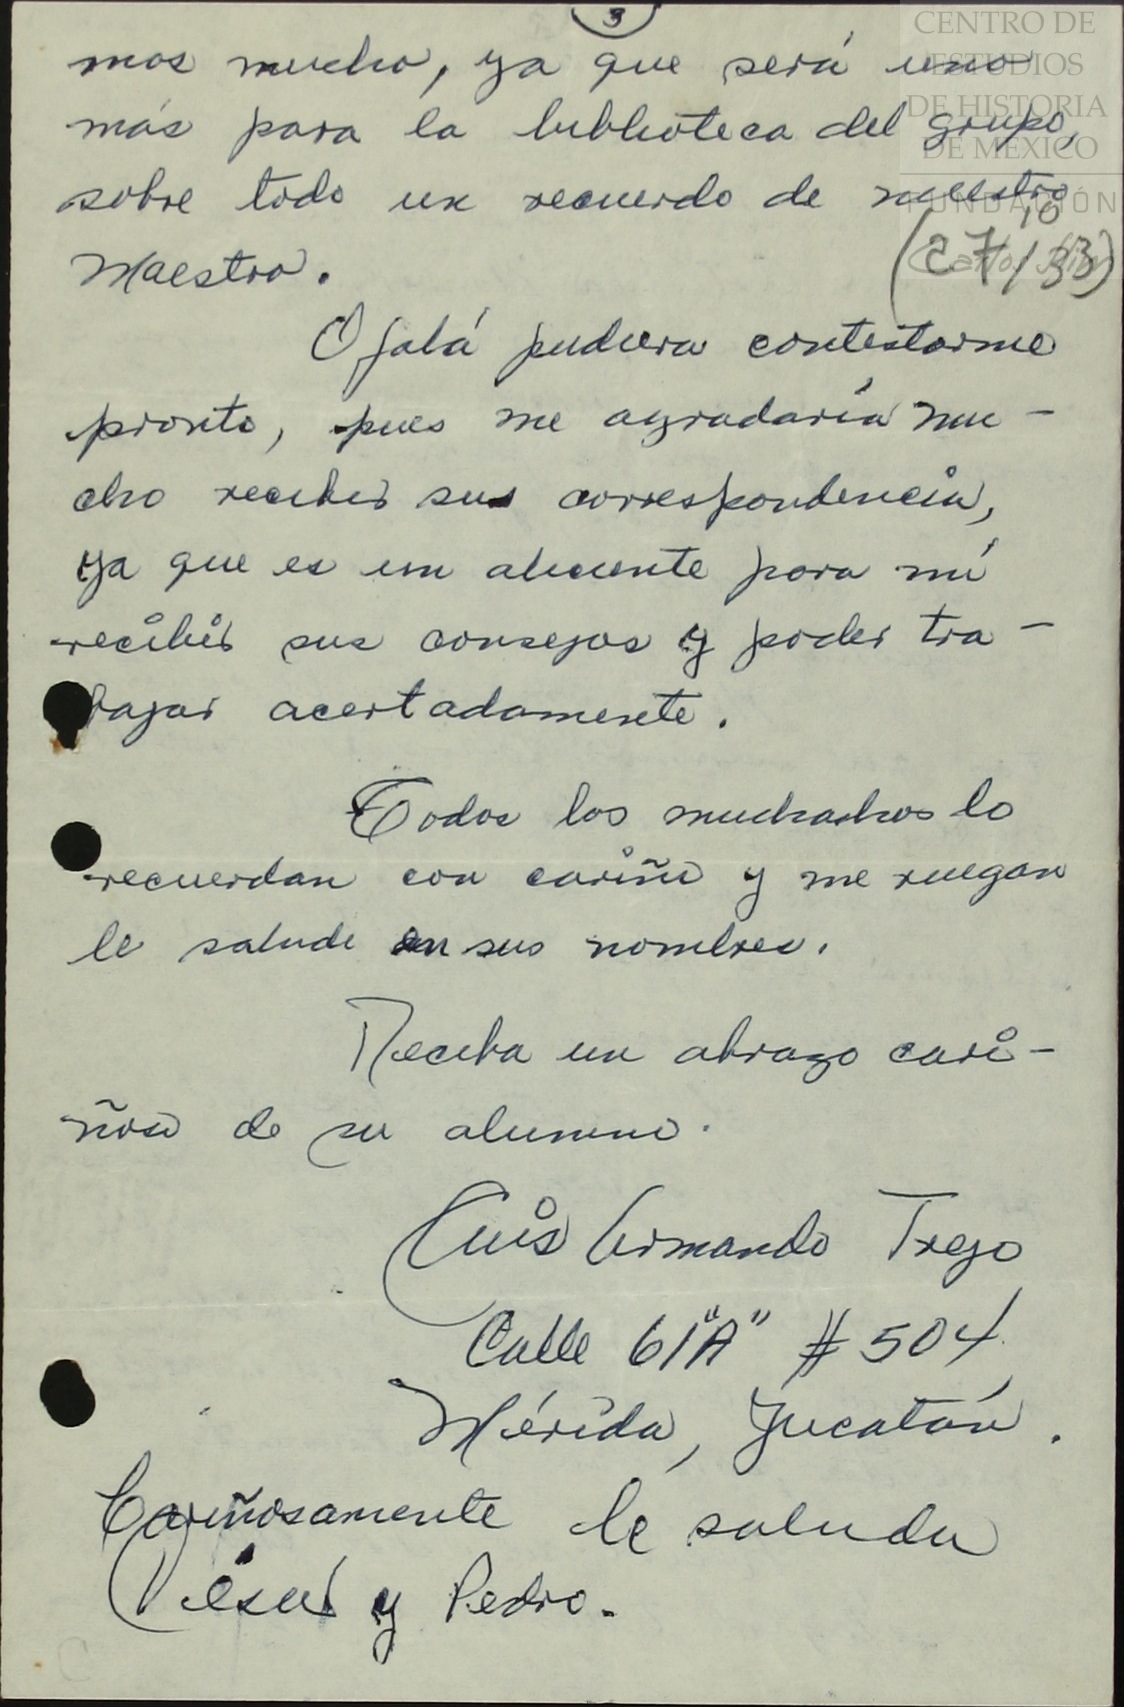 3
CENTRO DE
ESTUDIOS
DE HISTORIA
DE MÉXICO
FUNDACIÓN
Carlos Slim
mos mucho, ya que será uno
más para la biblioteca del grupo,
sobre todo un recuerdo de nuestro
Maestro.
10
(27/33)
Ojalá pudiera contestarme
pronto, pues me agradaría mu-
cho recibir sus correspondencia,
ya que es un aliciente para mí
recibir sus consejos y poder tra-
bajar acertadamente.
Todos los muchachos lo
recuerdan con cariño y me ruegan
le salude en sus nombres.
Reciba un abrazo cari-
ñoso de su alumno.
Luis Armando Trejo
Calle 61 "A" # 504
Mérida, Yucatán.
Cariñosamente le saluda
y Pedro.